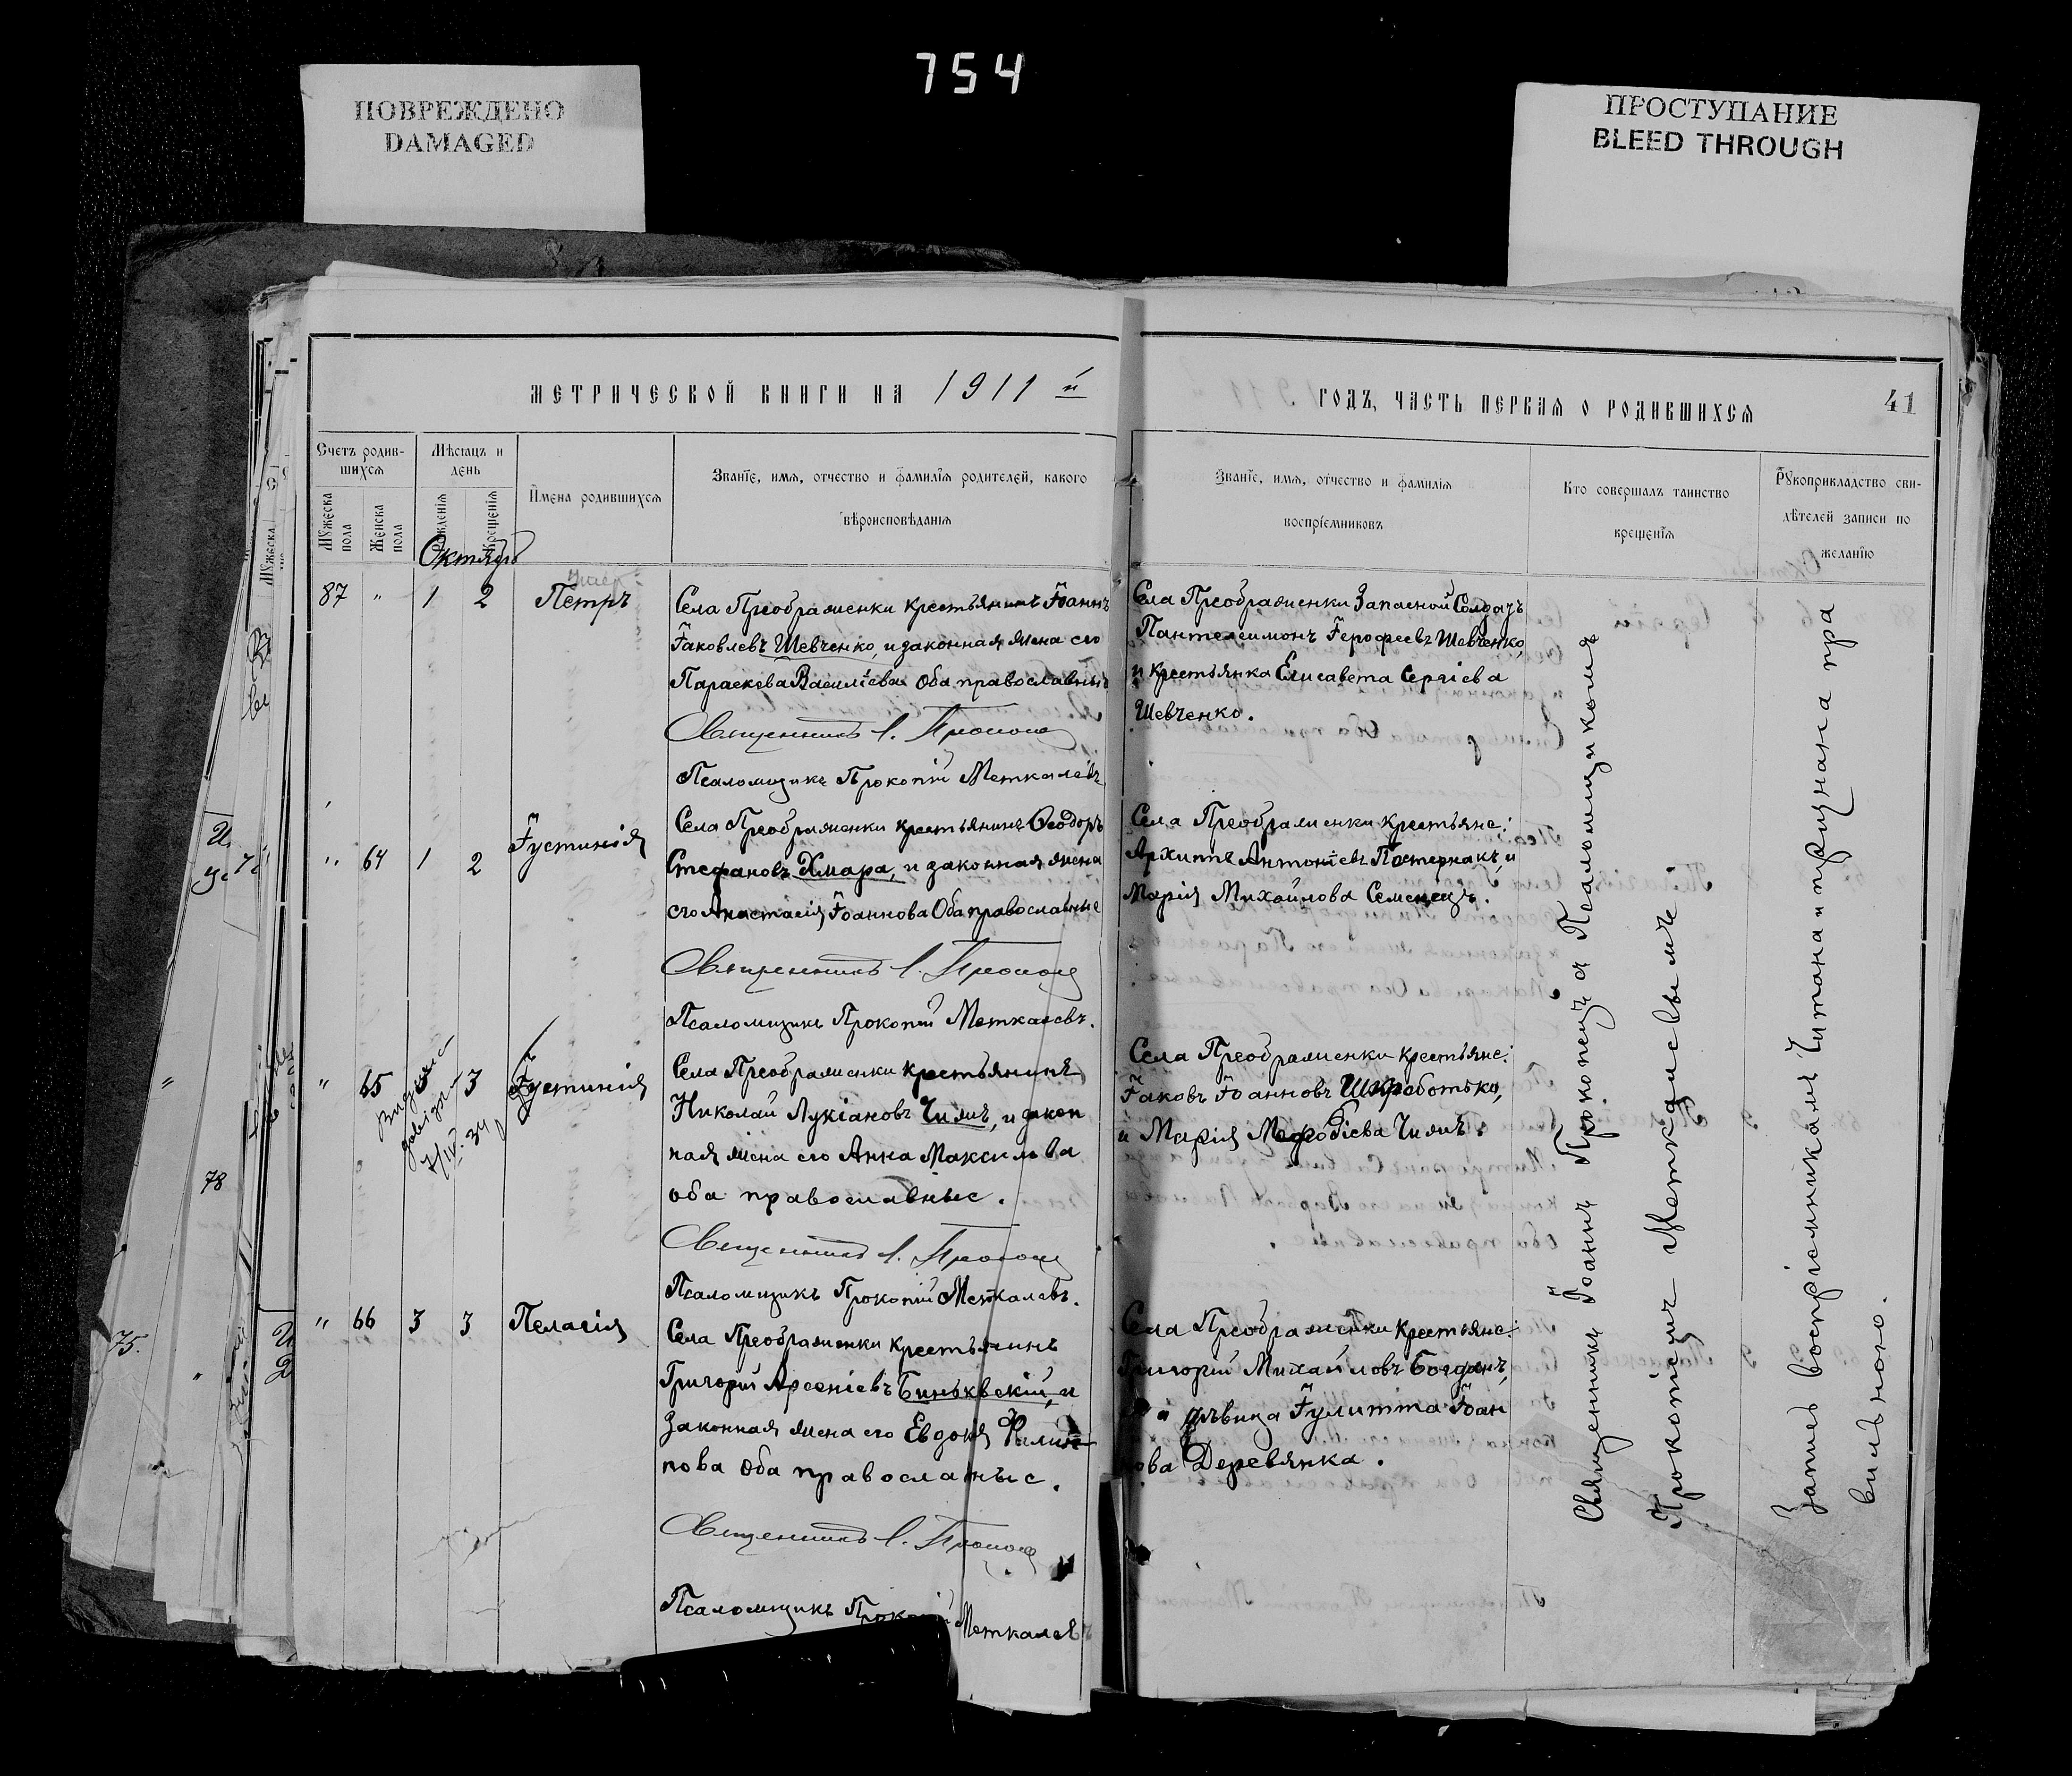 754
ПОВРЕЖДЕНО
DAMAGED
ПРОСТУПАНИЕ
BLEED THROUGH
МЕТРИЧЕСКОЙ КНИГИ НА 1911й
ГОДЪ, ЧАСТЬ ПЕРВАЯ О РОДИВШИХСЯ
41
Счетъ родив-
шихся
Мужеска
пола
Женска
пола
Мѣсяцъ и
день
Рожденія
Крещенія
Имена родившихся
Званіе, имя, отчество и фамилія родителей, какого
вѣроисповѣданія
Званіе, имя, отчество и фамилія
воспріемниковъ
Кто совершалъ таинство
крещенія
Рукоприкладство сви-
дѣтелей записи по
желанію
Октябрь
87 " 1 2 Петръ
Села Преображенки крестьянинъ Іоаннъ
Іаковлевъ Шевченко, и законная жена его
Параскева Василіева Оба православные
Священникъ І. Прокопец
Псаломщикъ Прокопій Меткалевъ
Села Преображенки Запасной Солдатъ
Пантелеимонъ Іерофеевъ Шевченко,
и крестьянка Елисавета Сергіева
Шевченко.
" 64 1 2 Іустинія
Села Преображенки крестьянинъ Ѳеодоръ
Стефановъ Хмара, и законная жена
его Анастасія Іоаннова Оба православные
Священникъ І. Прокопец
Псаломщикъ Прокопій Меткалевъ.
Села Преображенки крестьяне:
Архиппъ Антоніевъ Пастернакъ, и
Марія Михайлова Семенецъ.
" 65 3 3 Іустинія
34
Села Преображенки крестьянинъ
Николай Лукіановъ Чижъ, и закон
ная жена его Анна Максимова
оба православные.
Священникъ І. Прокопец
Псаломщикъ Прокопій Меткалевъ.
Села Преображенки крестьяне:
Іаковъ Іоанновъ Шкработько,
и Марія Меѳодіева Чижъ.
" 66 3 3 Пелагія
Села Преображенки крестьянинъ
Григорій Арсеніевъ Биньквскій, и
законная жена его Евдокія Филип
пова Оба православные.
Священникъ І. Прокопец
Псаломщикъ Прокопій Меткалевъ
Села Преображенки крестьяне:
Григорій Михайловъ Богданъ,
и дѣвица Іулитта Іоан
нова Деревянка.
Священникъ Іоаннъ Прокопецъ съ Псаломщикомъ
Прокопіемъ Меткалевымъ
Запись воспріемникамъ читана и признана пра
вильною.
78
75.